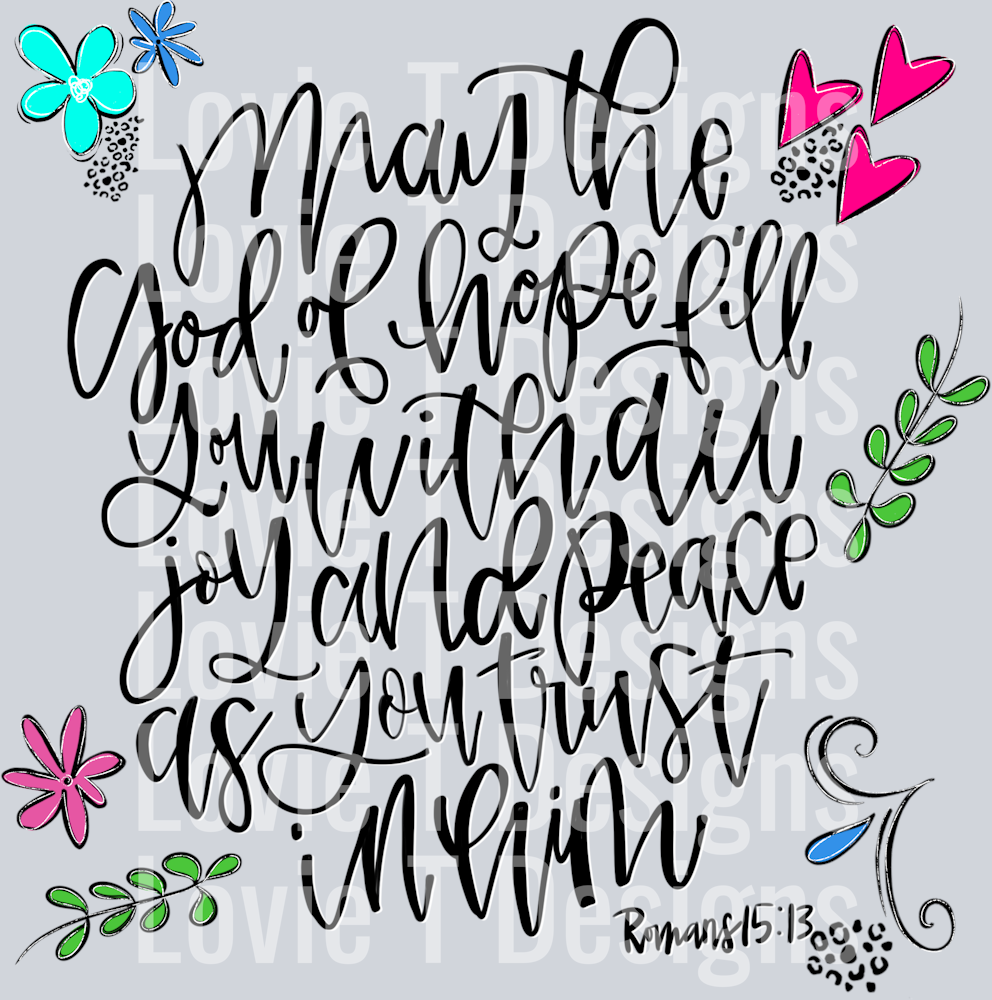 May the
God of hope fill
you with all
joy and peace
as you trust
in him
Romans 15:13
Lovie T Designs
Lovie T Designs
Lovie T Designs
Lovie T Designs
Lovie T Designs
Lovie T Designs
Lovie T Designs